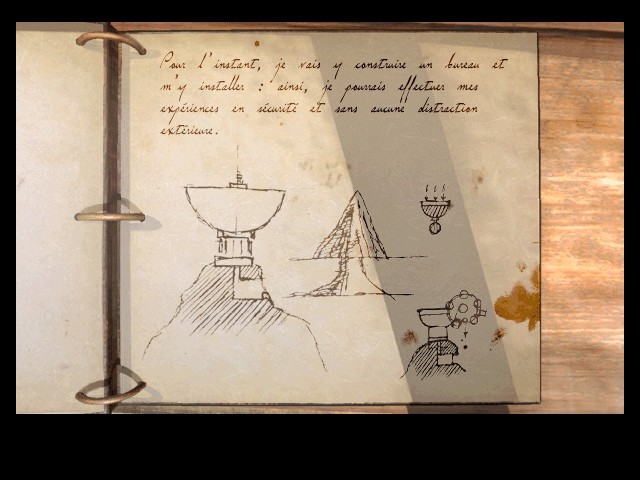 Pour l'instant, je vais y construire un bureau et
m'y installer : ainsi, je pourrais effectuer mes
expériences en sécurité et sans aucune distraction
extérieure.